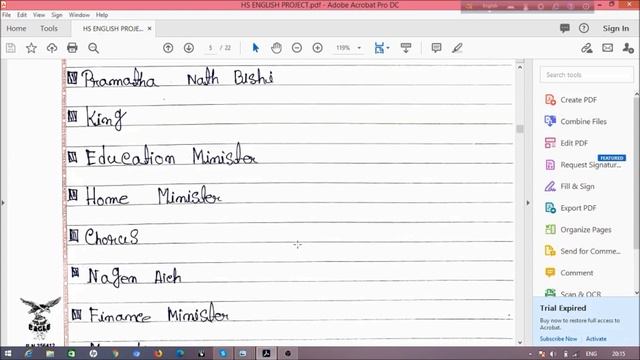 HS ENGLISH PROJECT.pdf - Adobe Acrobat Pro DC
English
File Edit View Window Help
Home Tools HS ENGLISH PROJEC... × Sign In
5 / 22 119%
Pramatha Nath Bishi
King
Education Minister
Home Minister
Chorus
Nagen Aich
Finance Minister
EAGLE
Search tools
Create PDF
Combine Files
Edit PDF
FEATURED
Request Signatur...
Fill & Sign
Export PDF
Organize Pages
Send for Comme...
Comment
Scan & OCR
Trial Expired
Buy now to restore full access to
Acrobat.
ENG 20:15